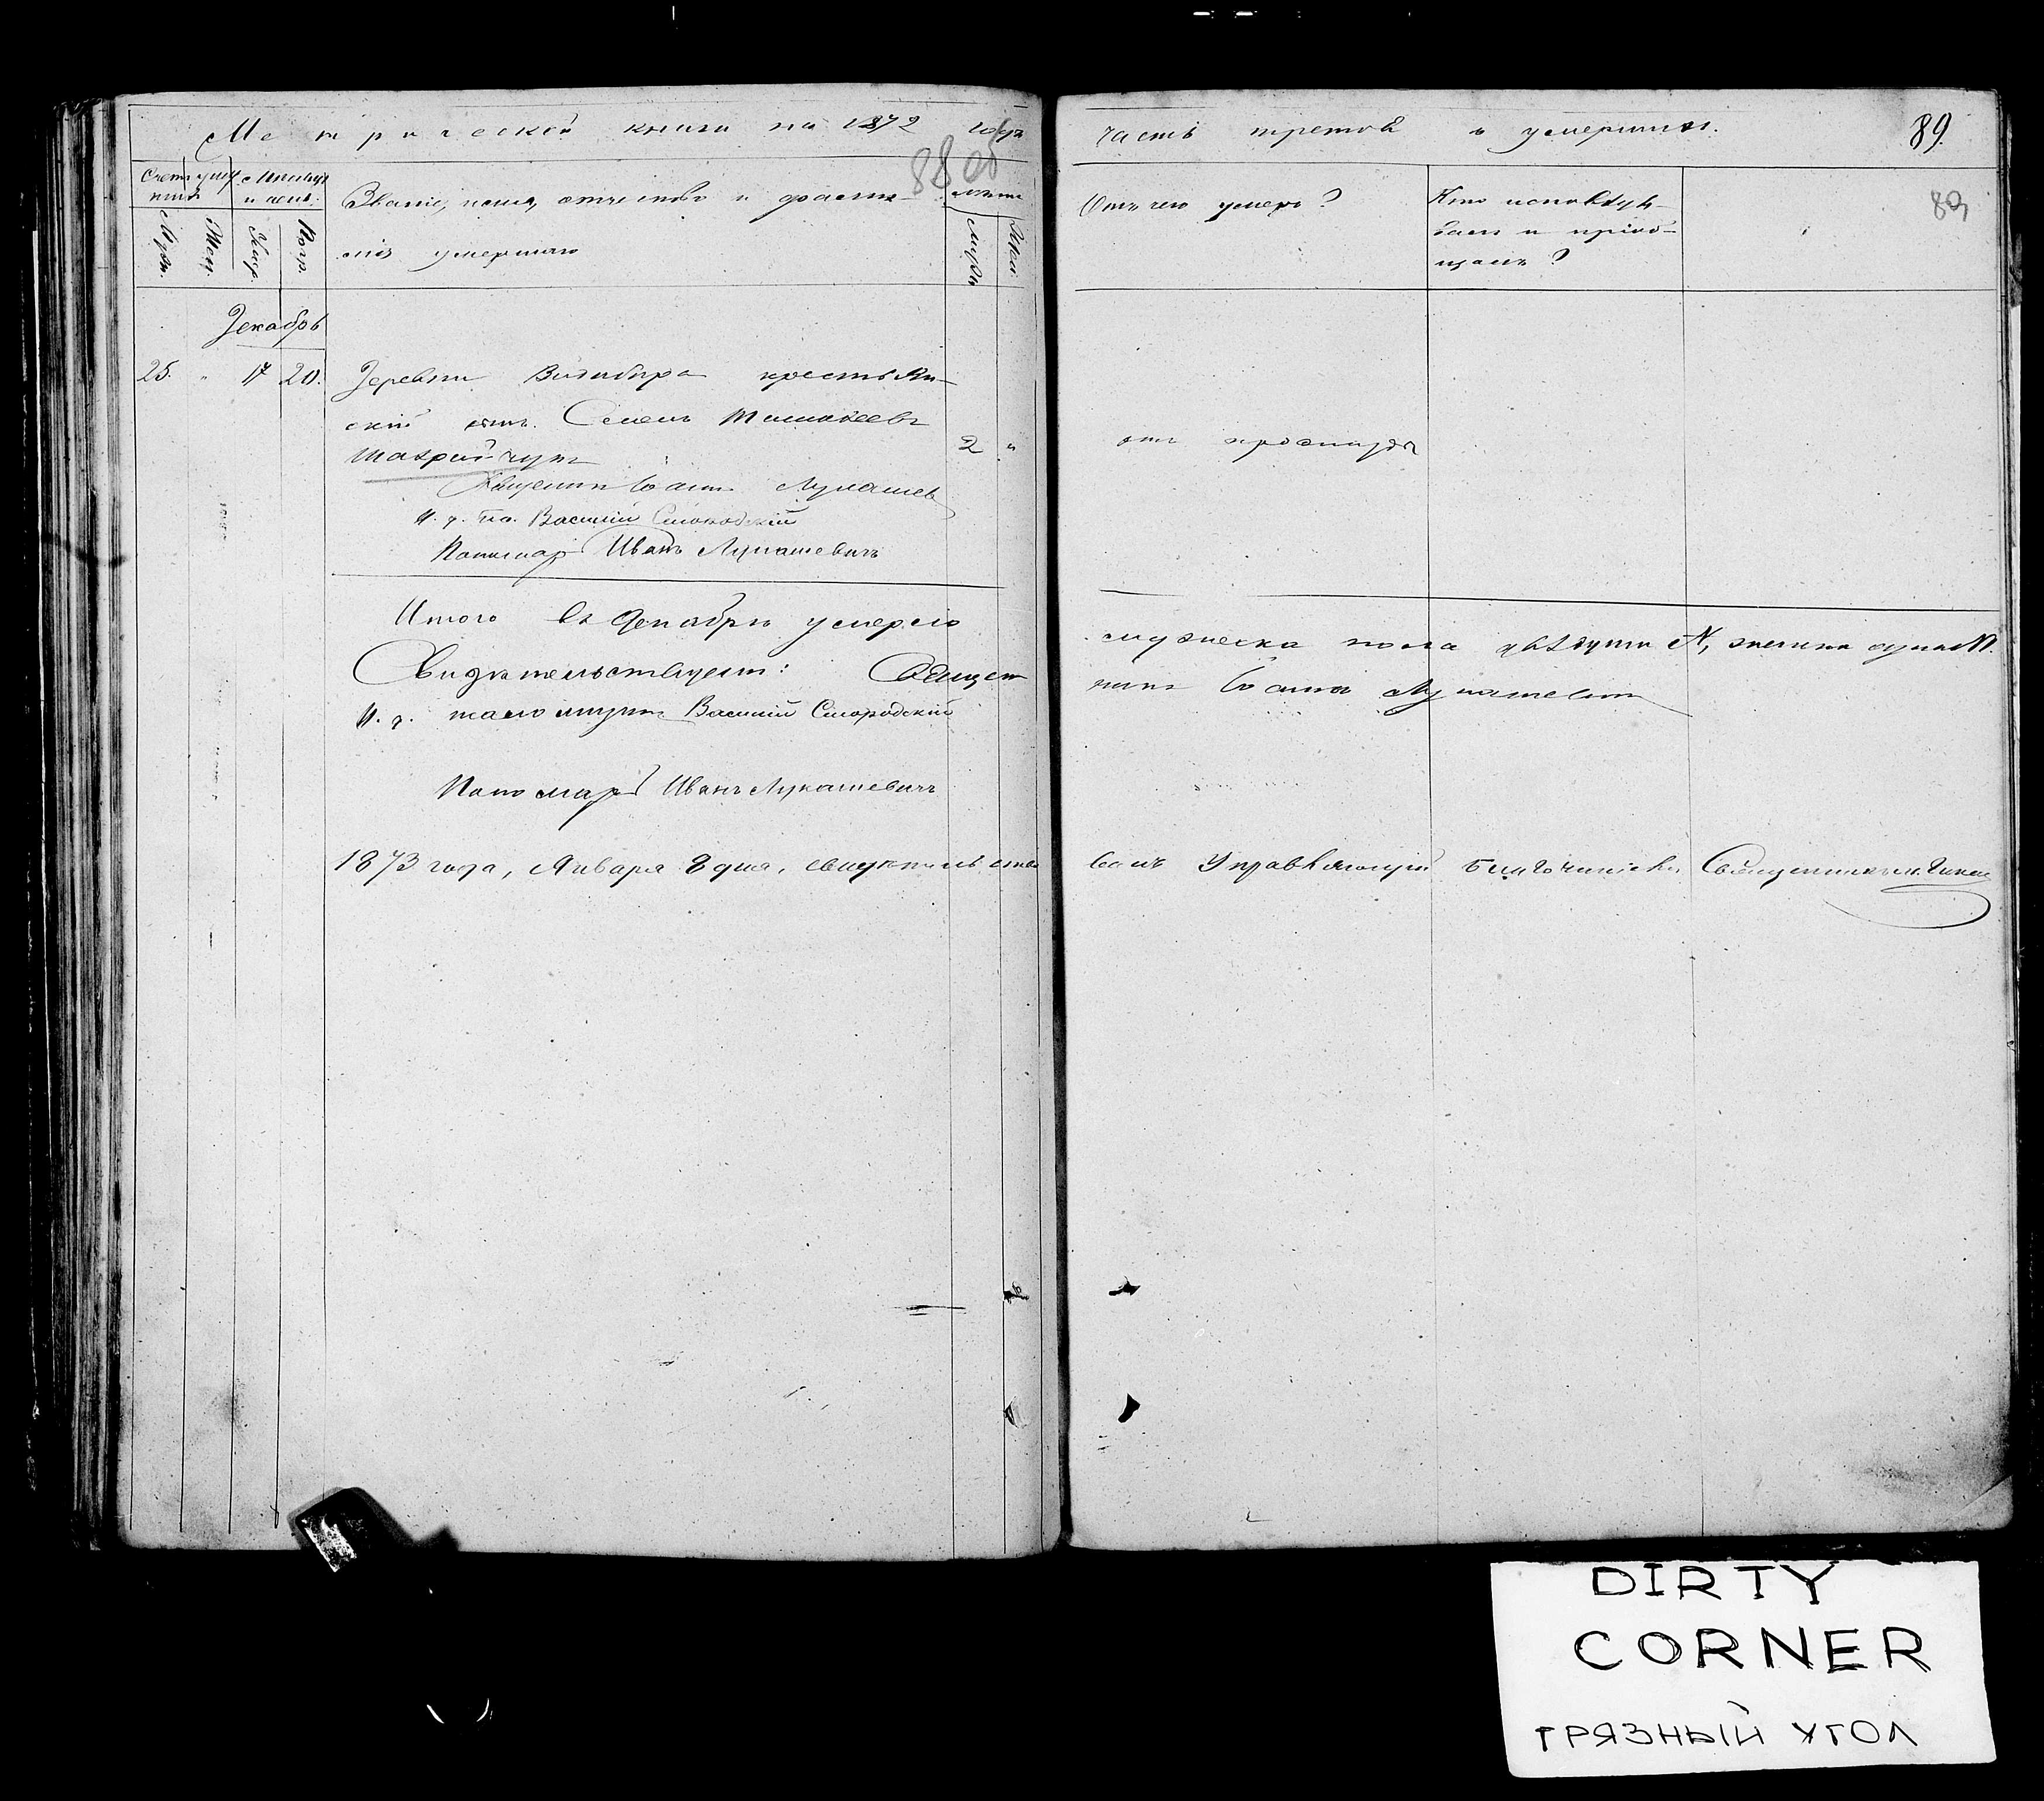 Метрической книги на 1872 года
88 об
Счет умер-
шихъ
Мѣсяцъ
и день.
Званіе, имя, отчество и фами-
лія умершаго
Лѣта
Муж.
Жен.
Муж.
Жен.
Декабрь
25. " 17 20. Деревни крестьян-
скій сынъ Семенъ
2 "
Священникъ Іоаннъ Лукашев
И. д. Пс. Василій
Пономарь Иванъ Лукашевичъ
Итого въ Декабрѣ умерло
Свидѣтельствуемъ: Священ
И. д. псаломщика Василій
Пономарь Иванъ Лукашевичъ
1873 года, Января 8 дня, свидѣтельство
часть третья о умершихъ.
89.
89
Отъ чего умеръ?
Кто исповѣды-
валъ и пріоб-
щалъ?
отъ простуды
мужеска пола
никъ Іоаннъ Лукашевичъ
валъ Управляющій Благочиніемъ Священникъ
DIRTY
CORNER
ГРЯЗНЫЙ УГОЛ